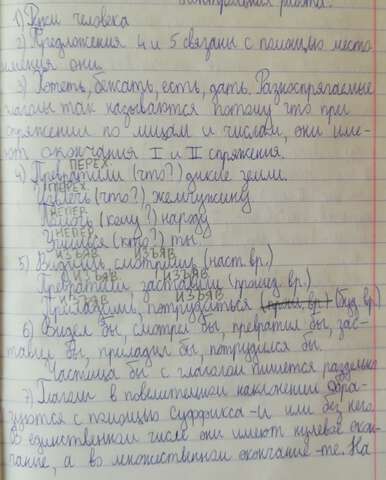 Контрольная работа.
1) Руки человека
2) Предложения 4 и 5 связаны с помощью место
имения они.
3) Хотеть, бежать, есть, дать. Разноспрягаемые
глаголы так называются потому что при
спряжении по лицам и числам, они име-
ют окончания I и II спряжения.
ПЕРЕХ
4) Превратили (что?) дикие земли.
ПЕРЕХ.
(что?) жемчужину
НЕПЕР.
(кому?) народу
НЕПЕР.
Учишься (кто?) ты.
ИЗЪЯВ ИЗЪЯВ
5) Видишь, смотришь (наст. вр.)
ИЗЪЯВ ИЗЪЯВ.
Превратили заставили (прошед. вр.)
ИЗЪЯВ ИЗЪЯВ.
Приладишь, потрудиться (прош. вр.) (буд. вр)
6) Видел бы, смотрел бы, превратил бы, зас-
тавил бы, приладил бы, потрудился бы.
Частица бы с глаголом пишется раздельно
7) Глаголы в повелительном наклонении обра-
зуются с помощью суффикса -и или без него.
В единственном числе они имеют нулевое окон-
чание, а во множественном окончание -те. На